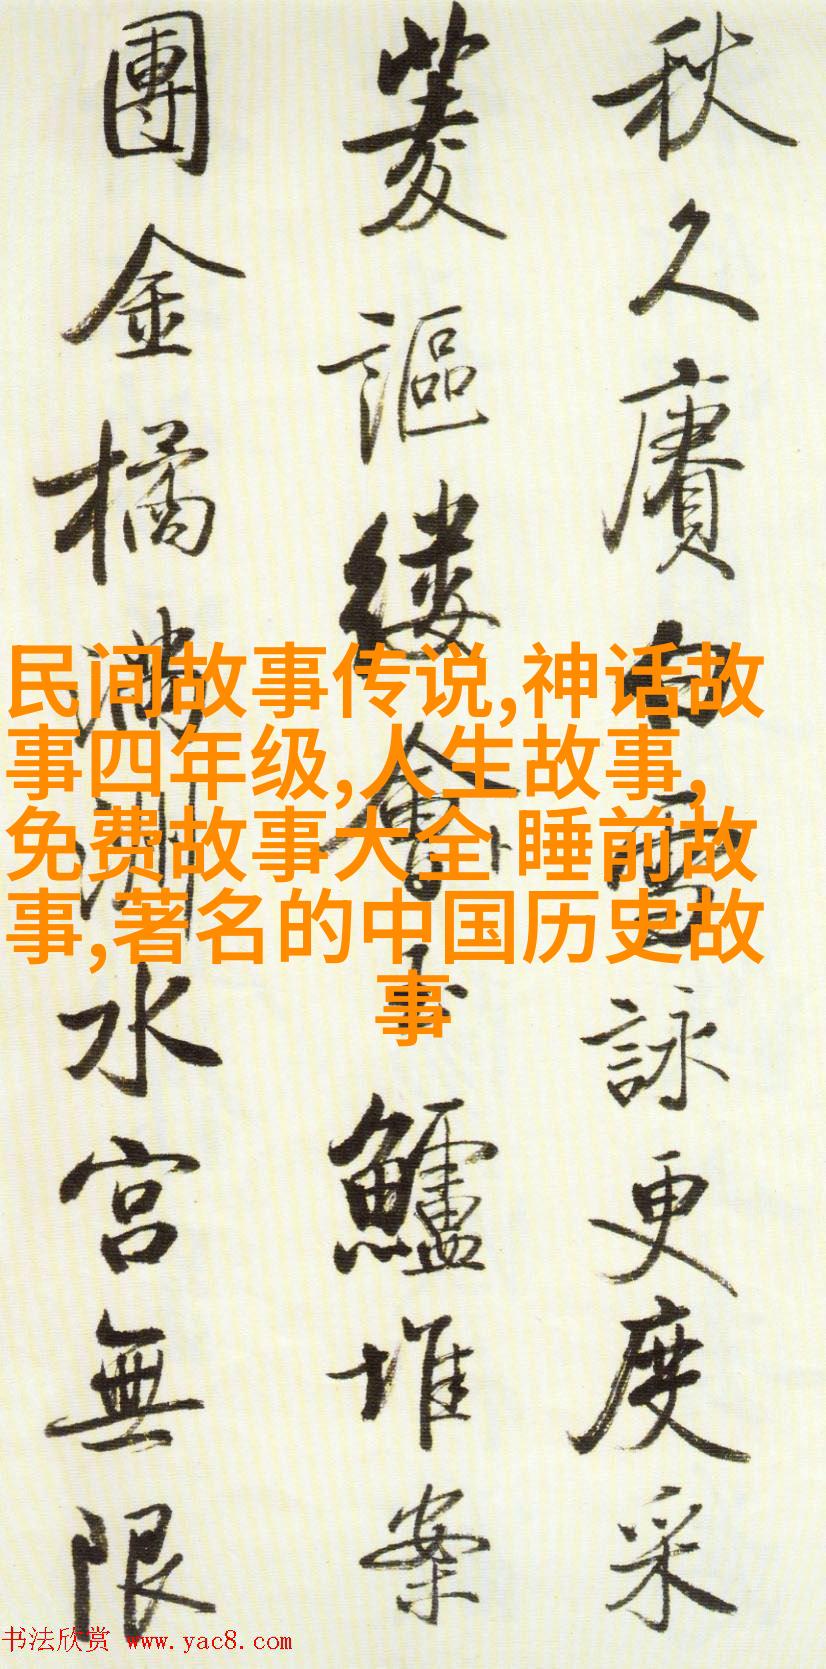 秋久賡白雪詠更度采
菱謳縷會玉鱸堆案
團金橘滿洲水宮無限
民间故事传说,神话故
事四年级,人生故事,
免费故事大全 睡前故
事,著名的中国历史故
事
书法欣赏 www.yac8.com